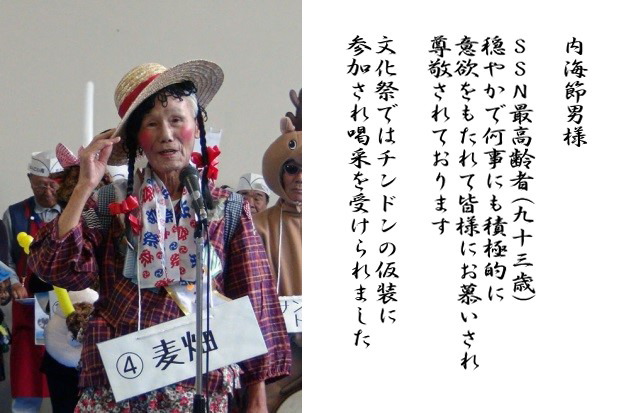 内海節男様
SSN最高齢者(九十三歳)
穏やかで何事にも積極的に
意欲をもたれて皆様にお慕いされ
尊敬されております
文化祭ではチンドンの仮装に
参加され喝采を受けられました
④ 麦畑